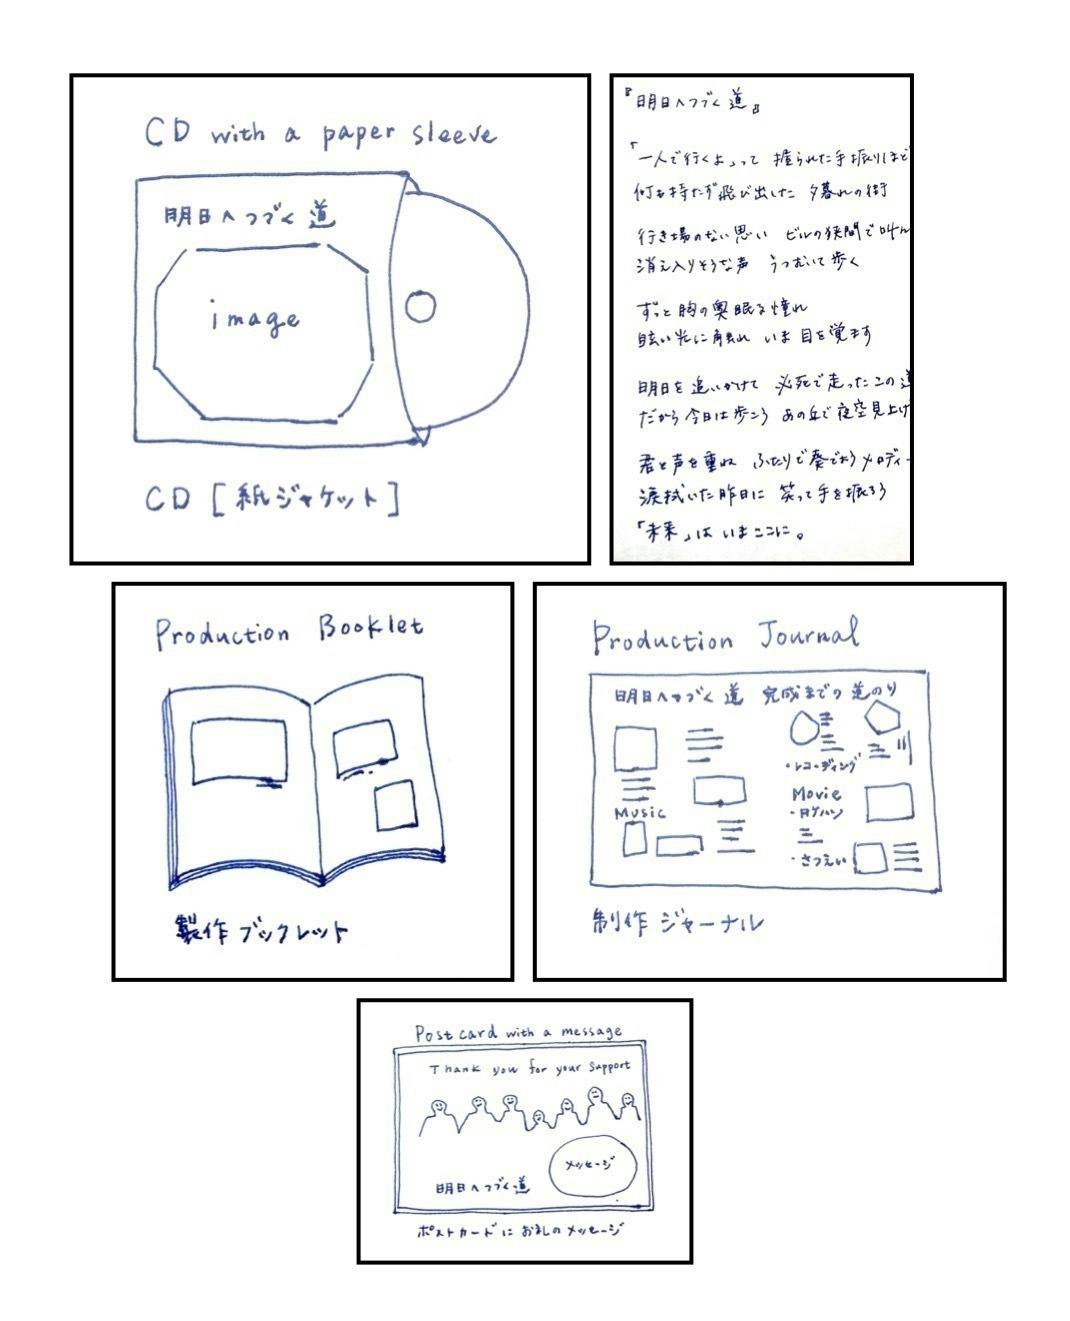 CD with a paper sleeve
明日へつづく道
image
CD [紙ジャケット]
『明日へつづく道』
「一人で行くよ」って 握られた手振りほど
何も持たず飛び出した 夕暮れの街
行き場のない思い ビルの狭間で叫ん
消え入りそうな声 うつむいて歩く
ずっと胸の奥眠る憧れ
眩い光に触れ いま 目を覚ます
明日を追いかけて 必死で走ったこの道
だから今日は歩こう あの丘で夜空見上げ
君と声を重ね ふたりで奏でようメロディー
涙拭いた昨日に 笑って手を振ろう
「未来」は いまここに。
Production Booklet
製作ブックレット
Production Journal
明日へつづく道 完成までの道のり
・レコーディング
Music
Movie
・ロケハン
・さつえい
制作ジャーナル
Postcard with a message
Thank you for your support
メッセージ
明日へつづく道
ポストカードにお礼のメッセージ